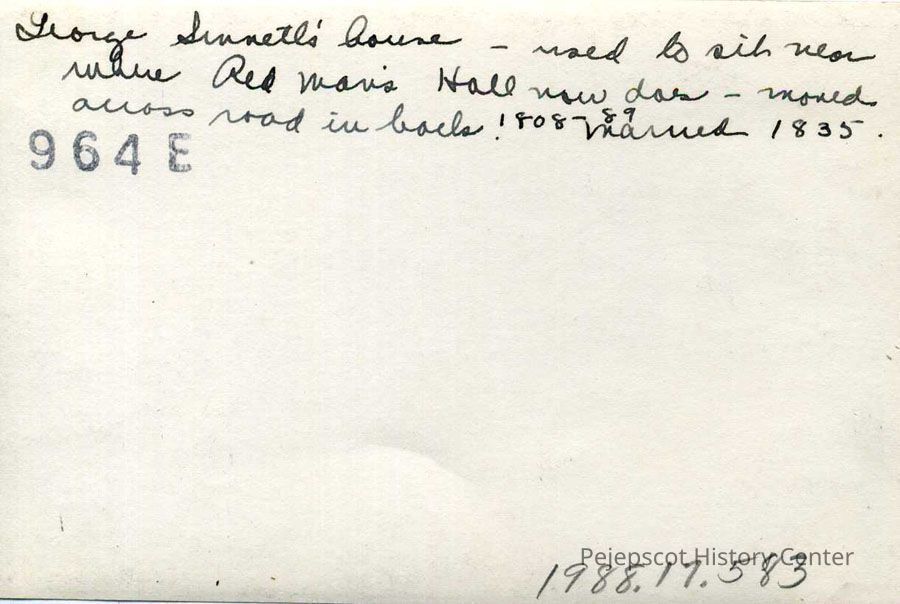 George Sinnett's house - used to sit near
where Red Man's Hall now does - moved
across road in back. 1808-89 Married 1835.
964E
Pejepscot History Center
1988.17.583